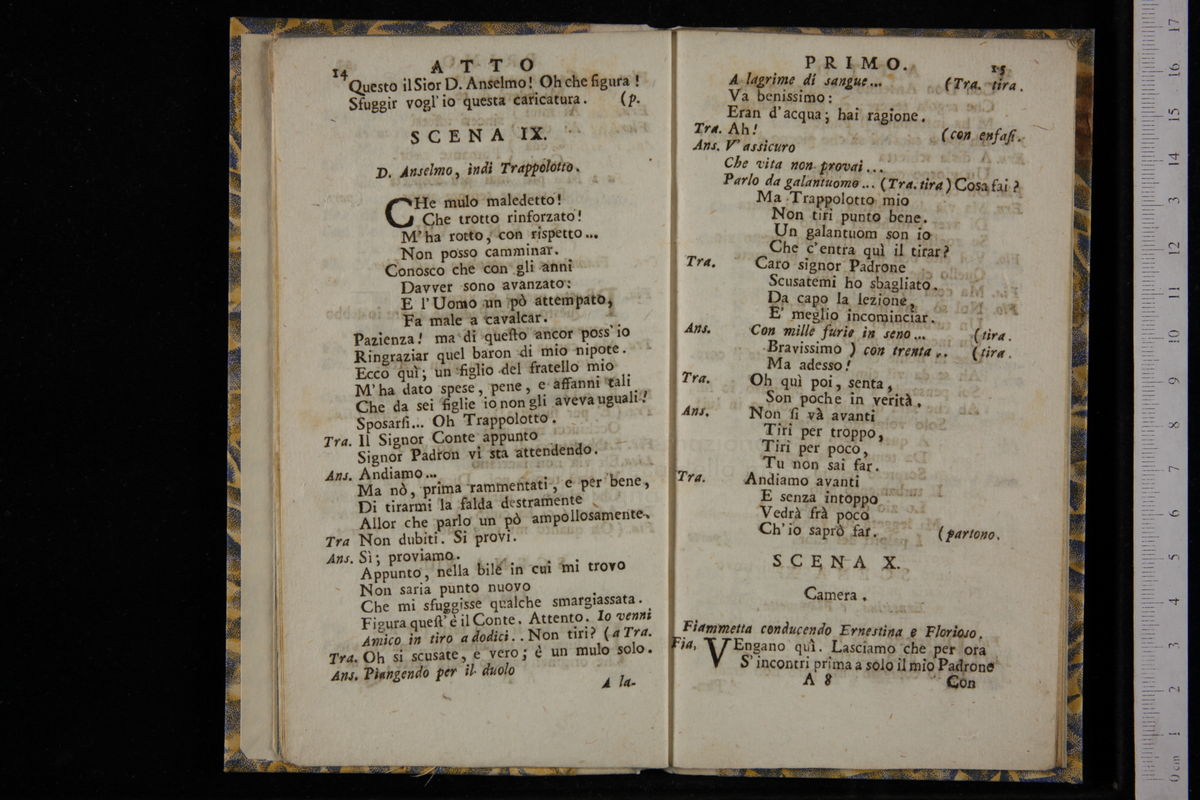 14 ATTO
Questo il Sior D. Anselmo! Oh che figura!
Sfuggir vogl'io questa caricatura. (p.
SCENA IX.
D. Anselmo, indi Trappolotto.
CHe mulo maledetto!
Che trotto rinforzato!
M'ha rotto, con rispetto...
Non posso camminar.
Conosco che con gli anni
Davver sono avanzato:
E l'Uomo un pò attempato,
Fa male a cavalcar.
Pazienza! ma di queſto ancor poss'io
Ringraziar quel baron di mio nipote.
Ecco quì; un figlio del fratello mio
M'ha dato spese, pene, e affanni tali
Che da sei figlie io non gli aveva uguali!
Sposarsi... Oh Trappolotto.
Tra. Il Signor Conte appunto
Signor Padron vi sta attendendo.
Ans. Andiamo...
Ma nò, prima rammentati, e per bene,
Di tirarmi la falda destramente
Allor che parlo un pò ampollosamente.
Tra Non dubiti. Si provi.
Ans. Sì; proviamo.
Appunto, nella bile in cui mi trovo
Non saria punto nuovo
Che mi sfuggisse qualche smargiassata.
Figura queſt'è il Conte. Attento. Io venni
Amico in tiro a dodici.. Non tiri? (a Tra.
Tra. Oh si scusate, e vero; è un mulo solo.
Ans. Piangendo per il duolo
A la-
PRIMO. 15
A lagrime di sangue... (Tra. tira.
Va benissimo:
Eran d'acqua; hai ragione.
Tra. Ah! (con enfaſi.
Ans. V'assicuro
Che vita non provai...
Parlo da galantuomo... (Tra. tira) Cosa fai?
Ma Trappolotto mio
Non tiri punto bene.
Un galantuom son io
Che c'entra quì il tirar?
Tra. Caro signor Padrone
Scusatemi ho sbagliato.
Da capo la lezione,
E' meglio incominciar.
Ans. Con mille furie in seno... (tira.
Bravissimo) con trenta.. (tira.
Ma adesso!
Tra. Oh quì poi, senta,
Son poche in verità.
Ans. Non ſi và avanti
Tiri per troppo,
Tiri per poco,
Tu non sai far.
Tra. Andiamo avanti
E senza intoppo
Vedrà frà poco
Ch'io saprò far. (partono.
SCENA X.
Camera.
Fiammetta conducendo Ernestina e Florioso.
Fia, VEngano quì. Lasciamo che per ora
S'incontri prima a solo il mio Padrone
A 8 Con